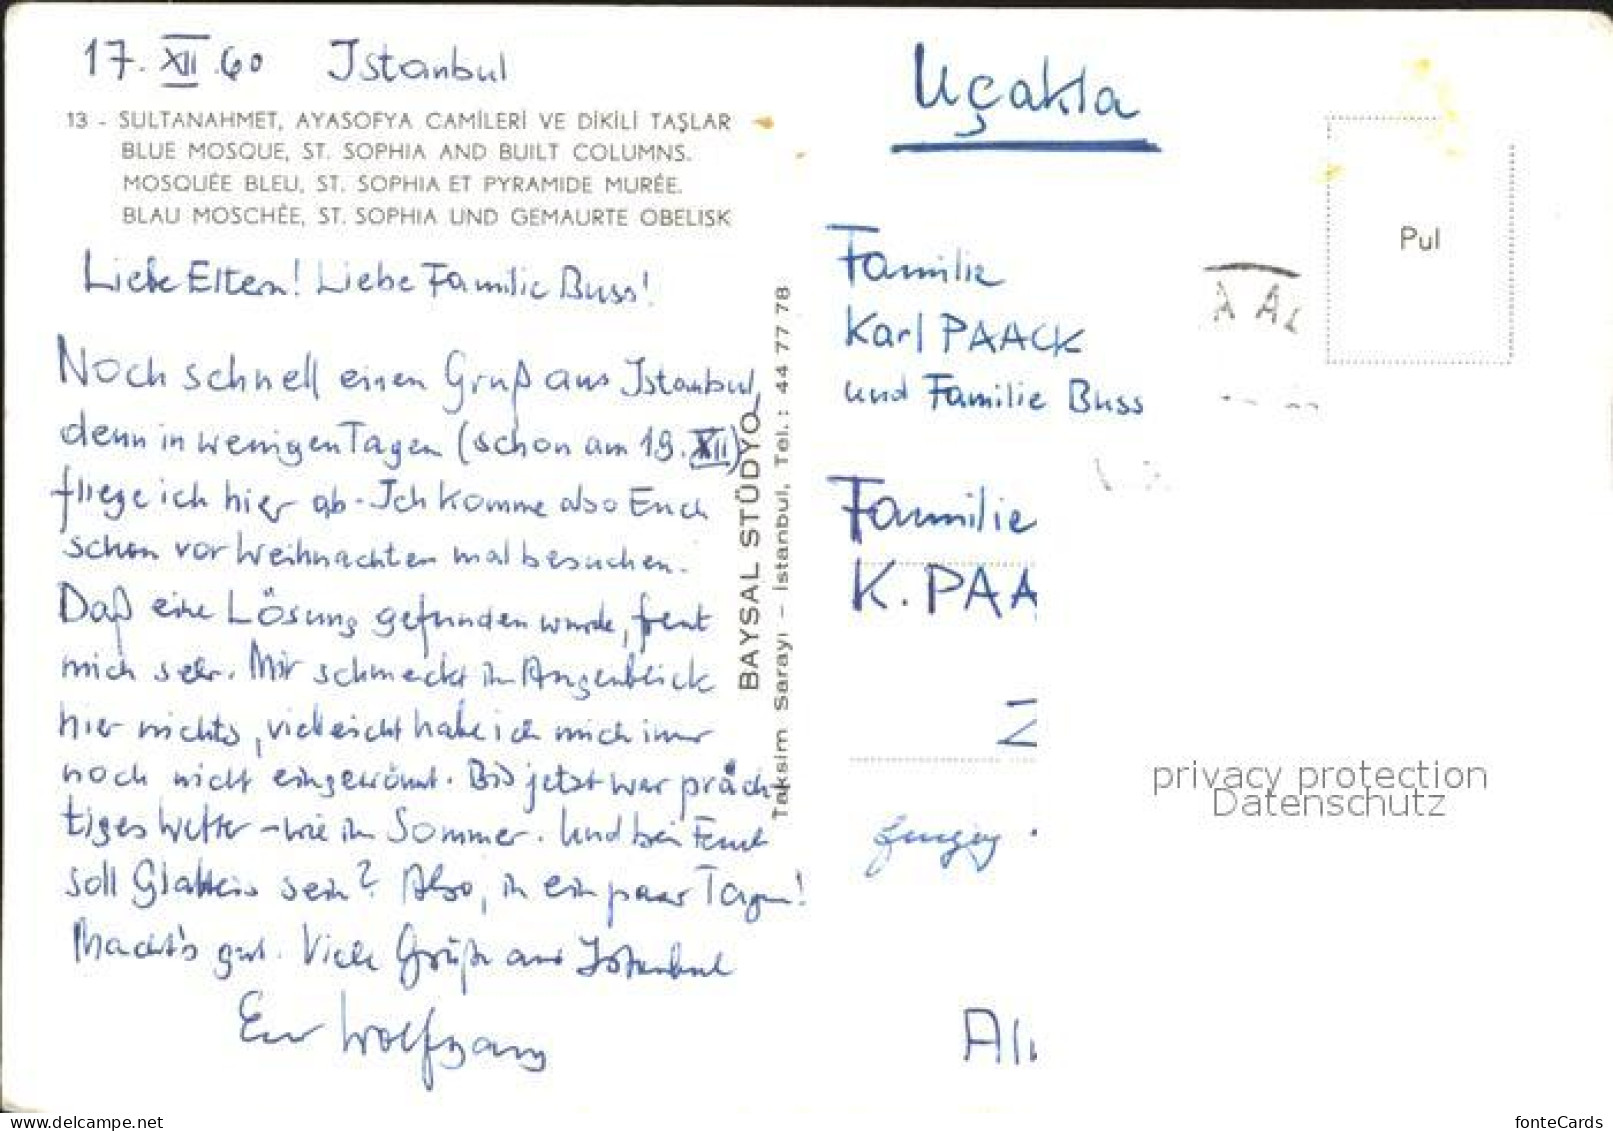 17. XII. 60 Istanbul
13 - SULTANAHMET, AYASOFYA CAMİLERİ VE DİKİLİ TAŞLAR
BLUE MOSQUE, ST. SOPHIA AND BUILT COLUMNS.
MOSQUÉE BLEU, ST. SOPHIA ET PYRAMIDE MURÉE.
BLAU MOSCHÉE, ST. SOPHIA UND GEMAURTE OBELISK
Liebe Eltern! Liebe Familie Buss!
Noch schnell einen Gruß aus Istanbul,
denn in wenigen Tagen (schon am 19. XII)
fliege ich hier ab. Ich komme also Euch
schon vor Weihnachten mal besuchen.
Daß eine Lösung gefunden wurde, freut
mich sehr. Mir schmeckt im Augenblick
hier nichts, vielleicht habe ich mich immer
noch nicht eingewöhnt. Bis jetzt war präch-
tiges Wetter - wie im Sommer. Und bei Euch
soll Glatteis sein? Also, in ein paar Tagen!
Macht's gut. Viele Grüße aus Istanbul
Euer Wolfgang
BAYSAL STÜDYO
Taksim Sarayı - İstanbul, Tel.: 44 77 78
Uçakla
Pul
Familie
Karl PAACK
und Familie Buss
A AL
Familie
K. PAA
privacy protection
Datenschutz
Al
delcampe.net
fonteCards